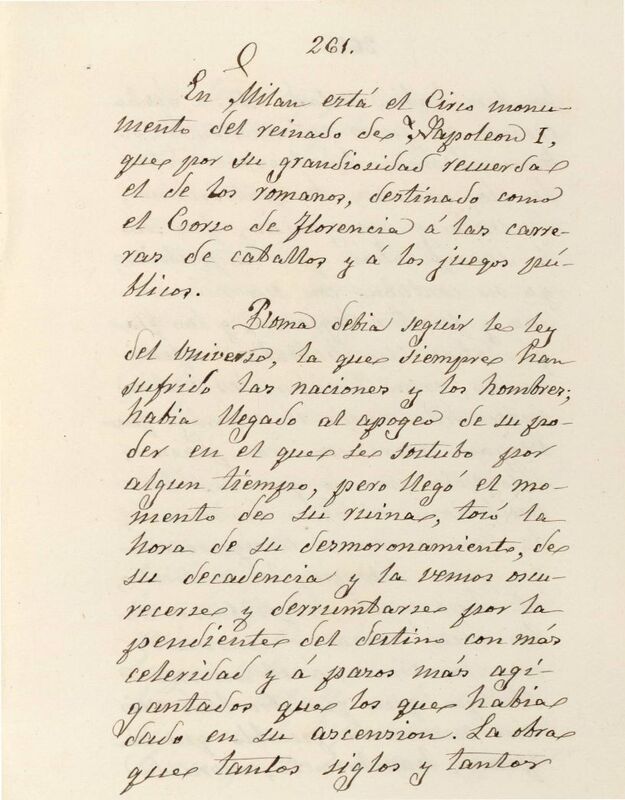 261.
En Milan está el Circo monu-
mento del reinado de Napoleon I,
que por su grandiosidad recuerda
el de los romanos, destinado como
el Corso de Florencia á las carre-
ras de caballos y á los juegos pú-
blicos.
Roma debia seguir le ley
del universo, la que siempre han
sufrido las naciones y los hombres;
habia llegado al apogeo de su po-
der en el que se sostubo por
algun tiempo, pero llegó el mo-
mento de su ruina, tocó la
hora de su desmoronamiento, de
su decadencia y la vemos oscu-
recerse y derrumbarse por la
pendiente del destino con más
celeridad y á pasos más agi-
gantados que los que habia
dado en su ascension. La obra
que tantos siglos y tantos